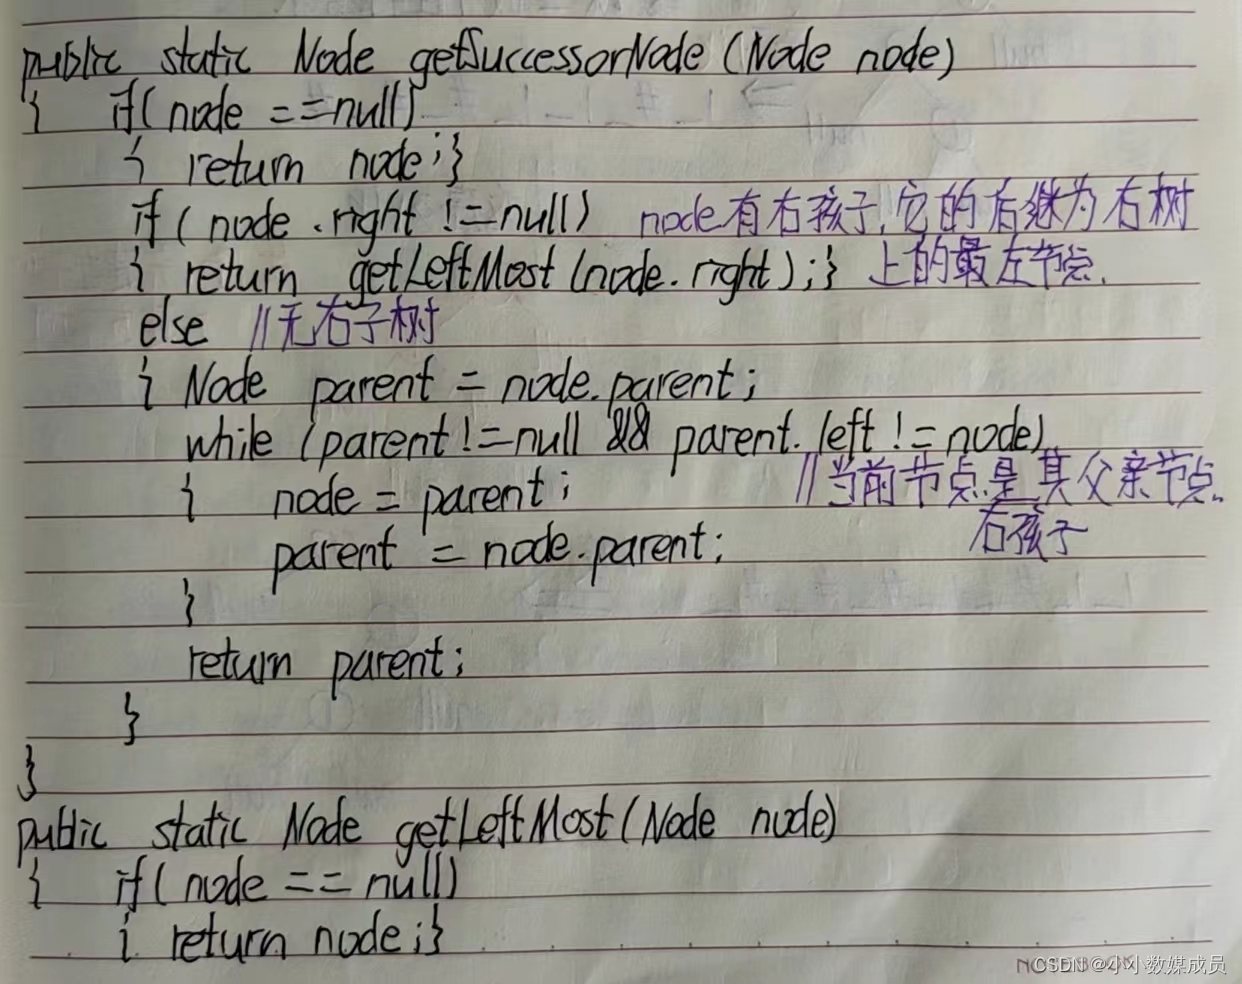 public static Node getSuccessorNode (Node node)
{ if( node ==null)
{ return node;}
if( node.right !=null) node有右孩子,它的后继为右树
{ return getLeftMost (node.right);} 上的最左节点.
else //无右子树
{ Node parent = node.parent;
while (parent!=null && parent.left != node)
{ node = parent; //当前节点是其父亲节点
右孩子
parent = node.parent;
}
return parent;
}
}
public static Node getLeftMost(Node node)
{ if( node == null)
{ return node;}
CSDN @小小数媒成员